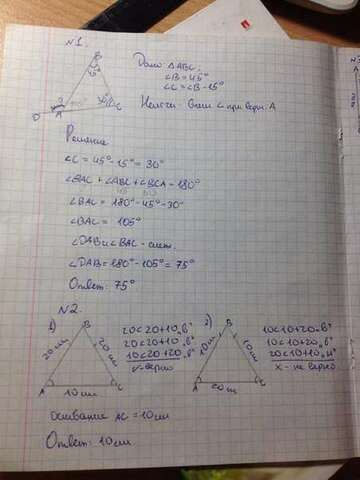 №1.
B
45°
3
30°
D
A
C
Дано: ΔABC;
∠B = 45°
∠C = ∠B - 15°
Найти: внеш ∠ при верш. A
Решение
∠C = 45° - 15° = 30°
∠BAC + ∠ABC + ∠BCA = 180°
∠BAC = 180° - 45° - 30°
∠BAC = 105°
∠DAB и ∠BAC - смеж.
∠DAB = 180° - 105° = 75°
Ответ: 75°
№2.
1)
B
20 см
20 см
A
C
10 см
20 < 20 + 10 „в"
20 < 20 + 10 „в"
10 < 20 + 20 „в"
v - верно
2)
B
10 см
10 см
A
C
20 см
10 < 10 + 20 „в"
10 < 10 + 20 „в"
20 < 10 + 10 „н"
x - не верно
Основание AC = 10 см
Ответ: 10 см